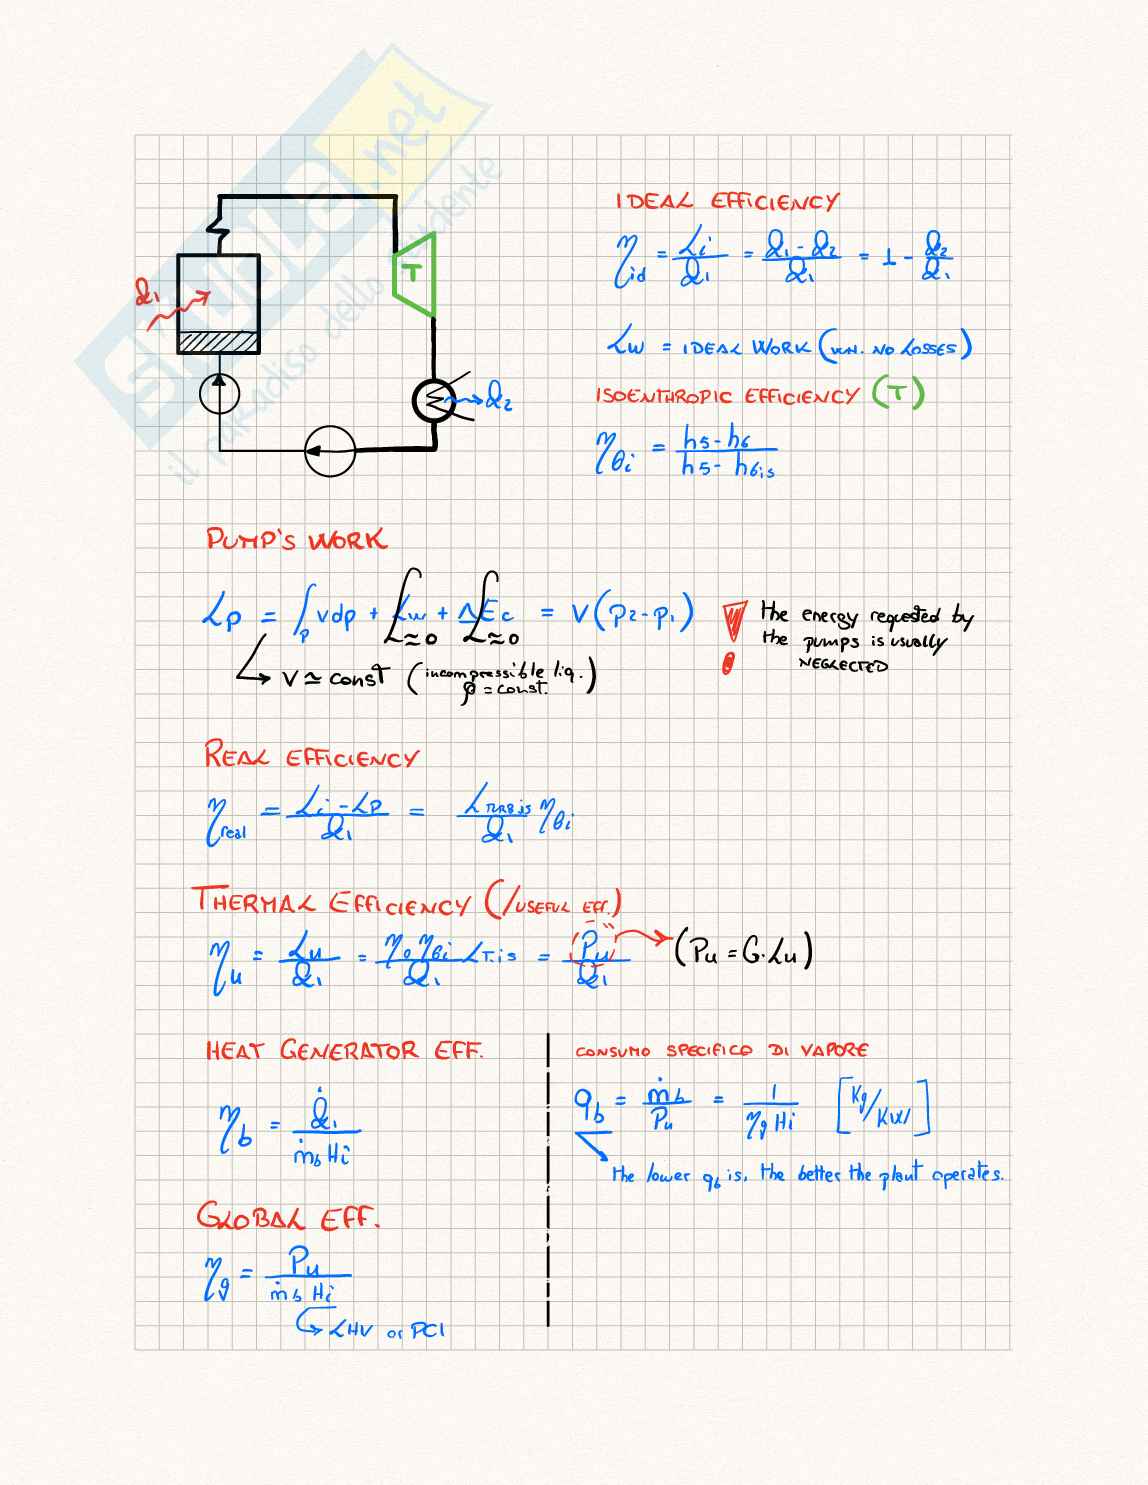 SKUOLA.net
il paradiso dello studente
Q₁
T
Q₂
IDEAL EFFICIENCY
η_id = Li/Q₁ = (Q₁ - Q₂)/Q₁ = 1 - Q₂/Q₁
Lw = IDEAL WORK ( NO LOSSES)
ISOENTHROPIC EFFICIENCY (T)
η_θi = (h5 - h6)/(h5 - h6is)
PUMP'S WORK
Lp = ∫p vdp + Lw + ΔEc = V(p2 - p1)
≃0 ≃0
V ≃ const (incompressible liq. ρ = const.)
! the energy requested by
the pumps is usually
NEGLECTED
REAL EFFICIENCY
η_real = (Li - Lp)/Q₁ = L is/Q₁ η_θi
THERMAL EFFICIENCY (/USEFUL EFF.)
η_u = Lu/Q₁ = η_0 η_θi L T.is/Q₁ = Pu/Q₁ (Pu = G·Lu)
HEAT GENERATOR EFF.
η_b = Q̇₁/(ṁb Hi)
CONSUMO SPECIFICO DI VAPORE
q_b = ṁb/Pu = 1/(ηg Hi) [Kg/KW]
the lower q_b is, the better the plant operates.
GLOBAL EFF.
η_g = Pu/(ṁb Hi)
LHV or PCI